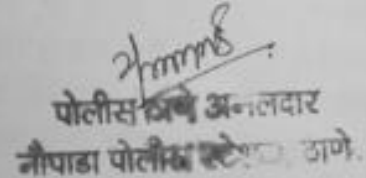 पोलीस ठाणे अंमलदार
नौपाडा पोलीस स्टेशन ठाणे.